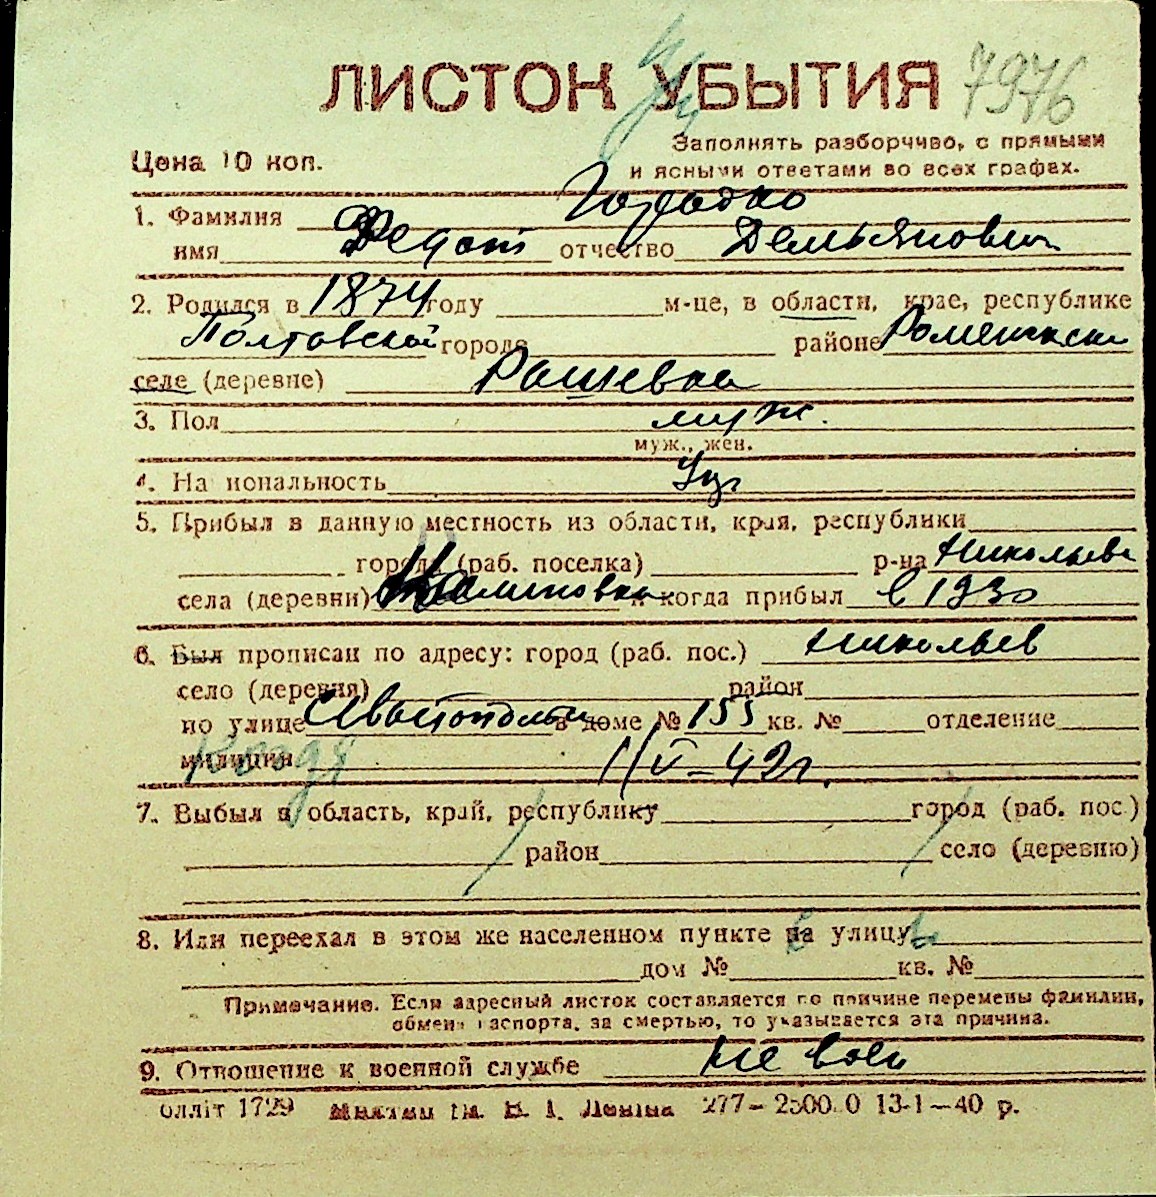 ЛИСТОК УБЫТИЯ 7976
Цена 10 коп.
Заполнять разборчиво, с прямыми
и ясными ответами во всех графах.
1. Фамилия
имя Федот отчество Демьянович
2. Родился в 1874 году м-це, в области, крае, республике
Полтавской городе районе Роменском
селе (деревне) Рашевка
3. Пол муж.
муж., жен.
4. Национальность Укр
5. Прибыл в данную местность из области, края, республики
города (раб. поселка) р-на Николаев
села (деревни) Калиновка и когда прибыл в 1930
6. Был прописан по адресу: город (раб. пос.) Николаев
село (деревня) район
по улице в доме № 155 кв. № отделение
милиции 1/V-42г.
7. Выбыл в область, край, республику город (раб. пос.)
район село (деревню)
8. Или переехал в этом же населенном пункте на улицу
дом № кв. №
Примечание. Если адресный листок составляется по причине перемены фамилии,
обмена паспорта, за смертью, то указывается эта причина.
9. Отношение к военной службе не воен
олліт 1729 Леніна 277— 13-1—40 р.